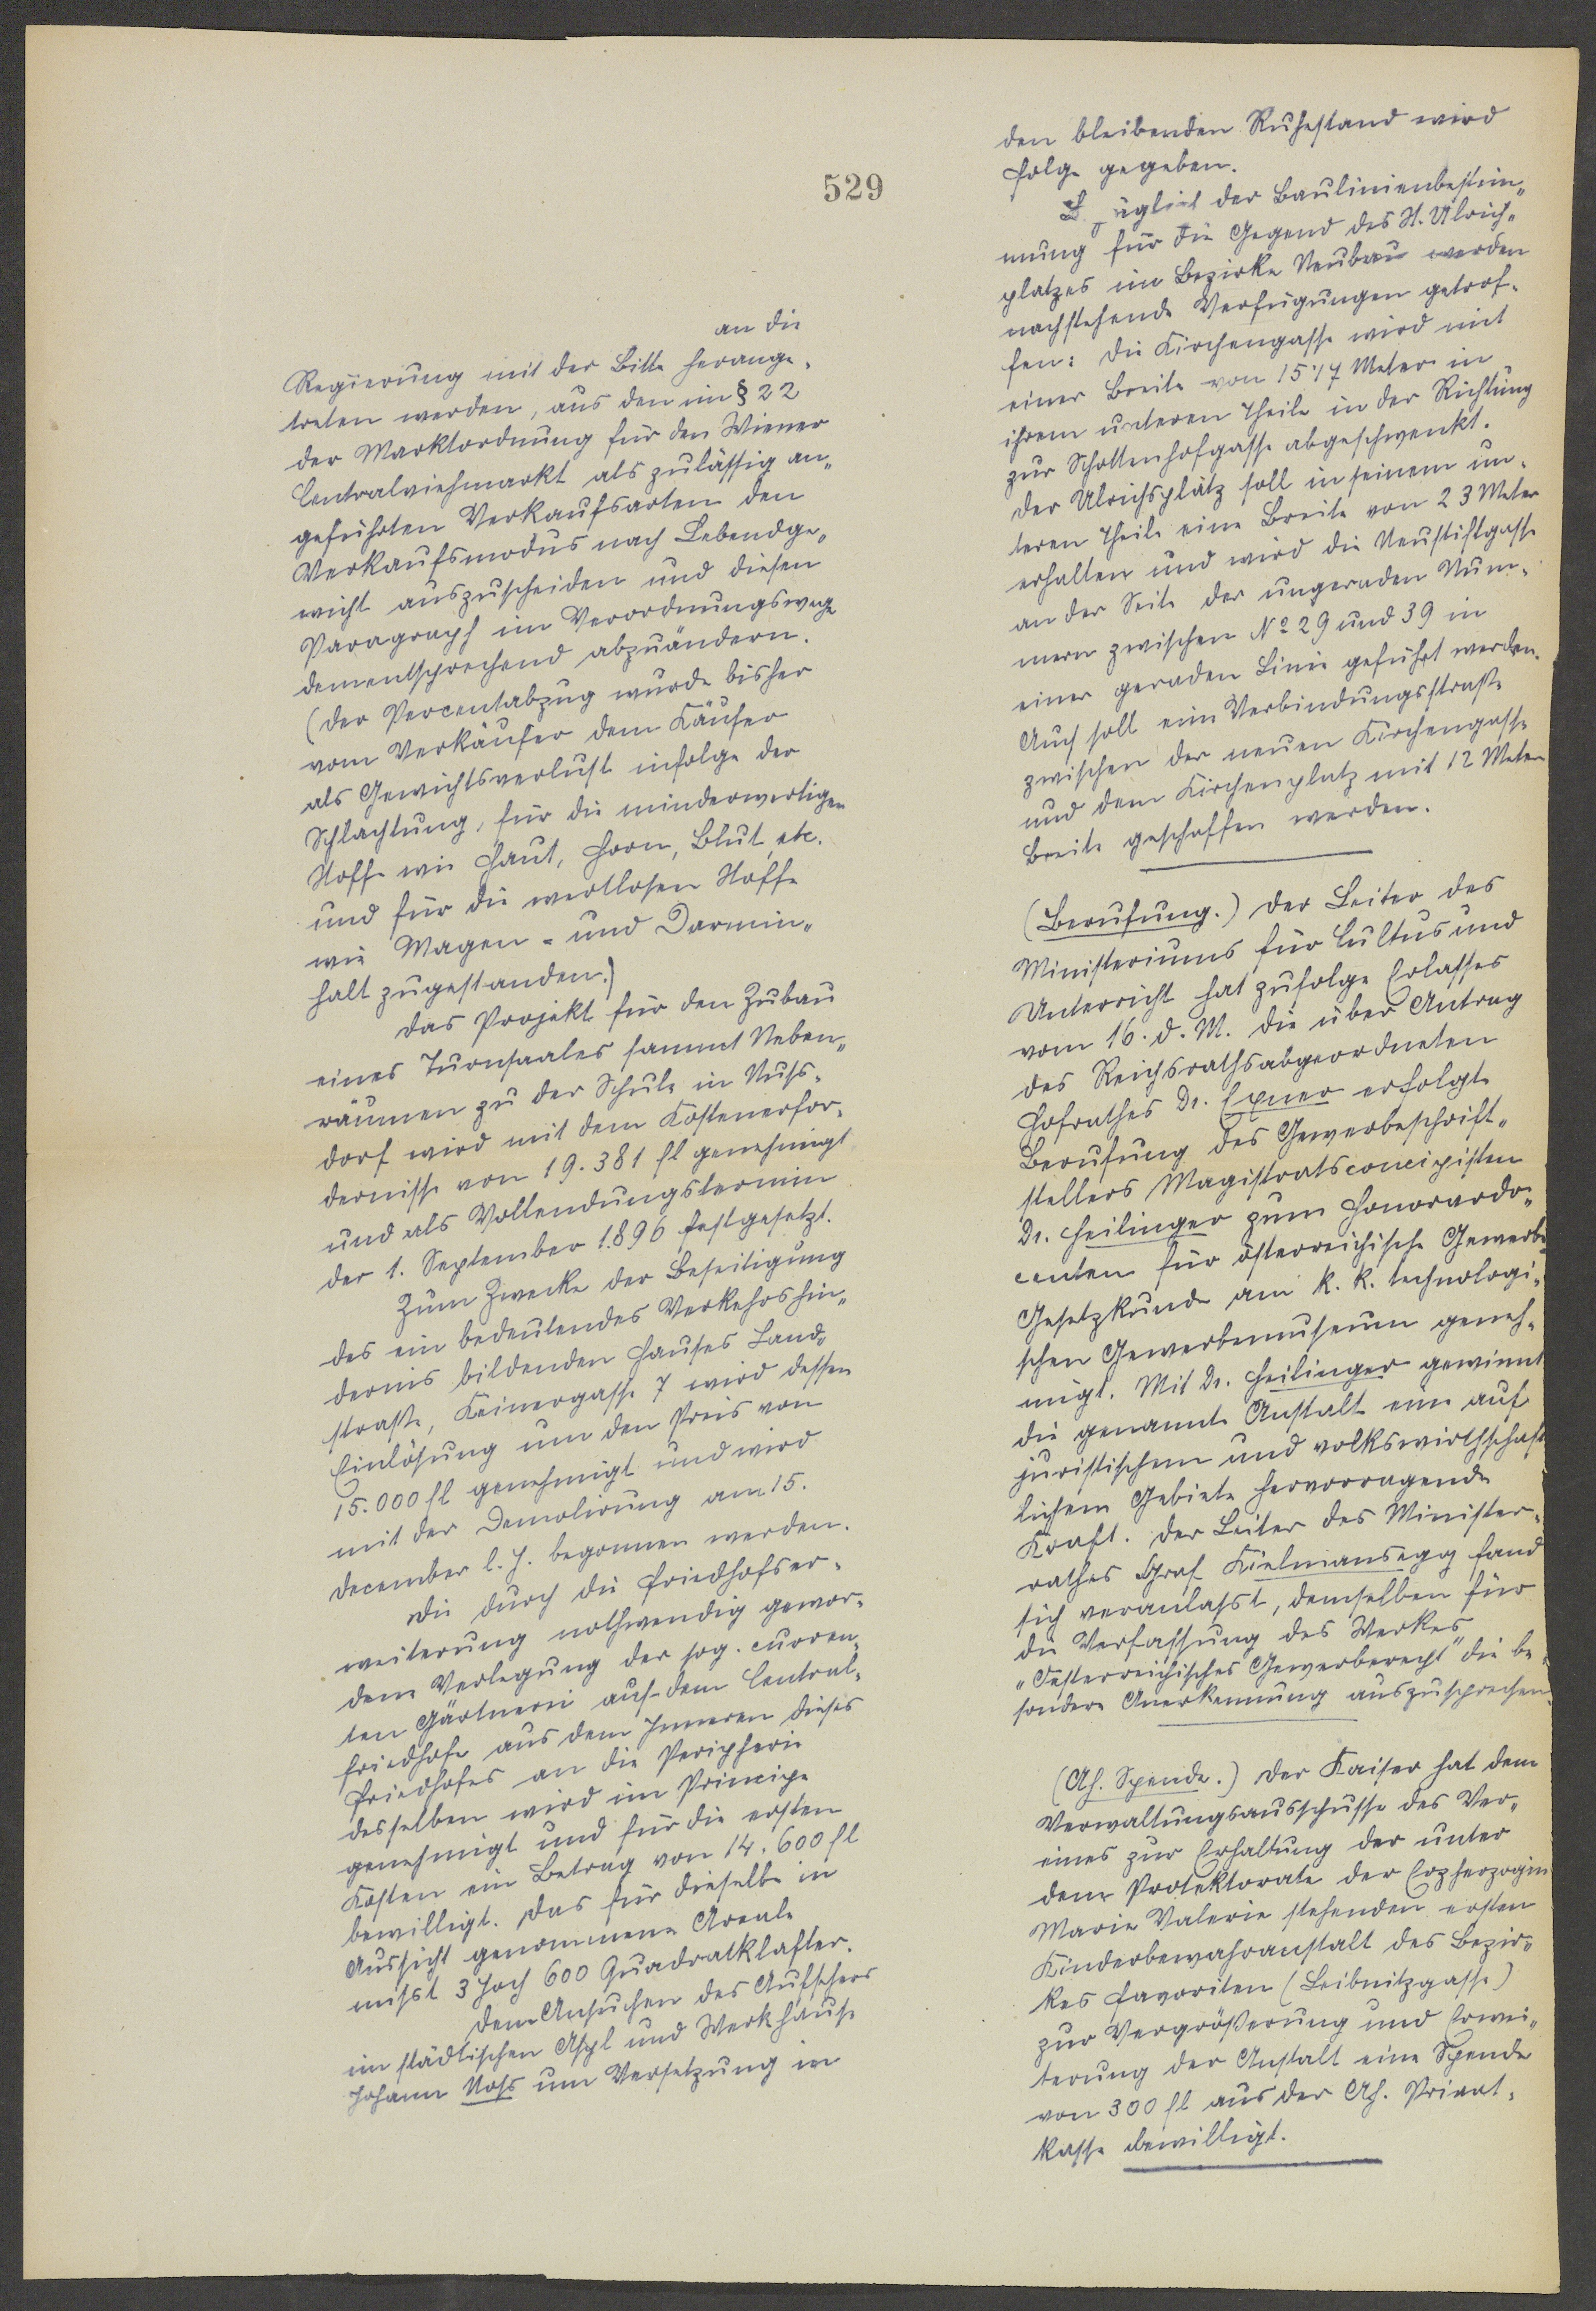 529
an die
Regierung mit der Bitte herange-
treten werden, aus den im § 22
der Marktordnung für den Wiener
Centralviehmarkt als zulässig an-
geführten Verkaufsarten den
Verkaufsmodus nach Lebendge-
wicht auszuscheiden und diesen
Paragraph im Verordnungswege
dementsprechend abzuändern.
(Der Percentabzug wurde bisher
vom Verkäufer dem Käufer
als Gewichtsverlust infolge der
Schlachtung, für die minderwertigen
Stoffe wie Haut, Horn, Blut, etc.
und für die wertlosen Stoffe
wie Magen- und Darmin-
halt zugestanden.)
Das Projekt für den Zubau
eines Turnsaales sammt Neben-
räumen zu der Schule in Nuss-
dorf wird mit dem Kostenerfor-
dernisse von 19.381 fl genehmigt
und als Vollendungstermin
der 1. September 1896 festgesetzt.
Zum Zwecke der Beseitigung
des ein bedeutendes Verkehrshin-
dernis bildenden Hauses Land-
straße, Keinergasse 7 wird dessen
Einlösung um den Preis von
15.000 fl genehmigt und wird
mit der Demolirung am 15.
December l. J. begonnen werden.
Die durch die Friedhofser-
weiterung nothwendig gewor-
dene Verlegung der sog. curren-
ten Gärtnerei auf dem Central-
friedhofe aus dem Inneren dieses
Friedhofes an die Peripherie
desselben wird im Principe
genehmigt und für die ersten
Kosten ein Betrag von 14.600 fl
bewilligt. Das für dieselbe in
Aussicht genommene Areale
misst 3 Joch 600 Quadratklafter.
Dem Ansuchen des Aufsehers
im städtischen Asyl und Werkhause
Johann Noss um Versetzung in
den bleibenden Ruhestand wird
Folge gegeben.
der Baulinienbestim-
mung für die Gegend des St. Ulrich-
platzes im Bezirke Neubau werden
nachstehende Verfügungen getrof-
fen: Die Kirchengasse wird mit
einer Breite von 15.17 Meter in
ihrem unteren Theile in der Richtung
zur Schottenhofgasse abgeschwenkt.
Der Ulrichsplatz soll in seinem un-
teren Theile eine Breite von 23 Meter
erhalten und wird die Neustiftgasse
an der Seite der ungeraden Num-
mern zwischen No 29 und 39 in
einer geraden Linie geführt werden.
Auch soll eine Verbindungsstraße
zwischen der neuen Kirchengasse
und dem Kirchenplatz mit 12 Meter
Breite geschaffen werden.
(Berufung.) Der Leiter des
Ministeriums für Cultus und
Unterricht hat zufolge Erlasses
vom 16. d. M. die über Antrag
des Reichsrathsabgeordneten
Hofrathes Dr. Exner erfolgte
Berufung des Gewerbeschrift-
stellers Magistratsconcipisten
Dr. Heilinger zum Honorardo-
centen für österreichische Gewerbe-
Gesetzkunde am k. k. technologi-
schen Gewerbemuseum geneh-
migt. Mit Dr. Heilinger gewinnt
die genannte Anstalt eine auf
juristischem und volkswirthschaft
lichem Gebiete hervorragende
Kraft. Der Leiter des Minister-
rathes Graf Kielmansegg fand
sich veranlasst, demselben für
die Verfassung des Werkes
„Österreichisches Gewerberecht" die be-
sondere Anerkennung auszusprechen.
(Ah. Spende.) Der Kaiser hat dem
Verwaltungsausschusse des Ver-
eines zur Erhaltung der unter
dem Protektorate der Erzherzogin
Marie Valerie stehenden ersten
Kinderbewahranstalt des Bezir-
kes Favoriten (Leibnitzgasse)
zur Vergrößerung und Erwei-
terung der Anstalt eine Spende
von 300 fl aus der Ah. Privat-
kasse bewilligt.